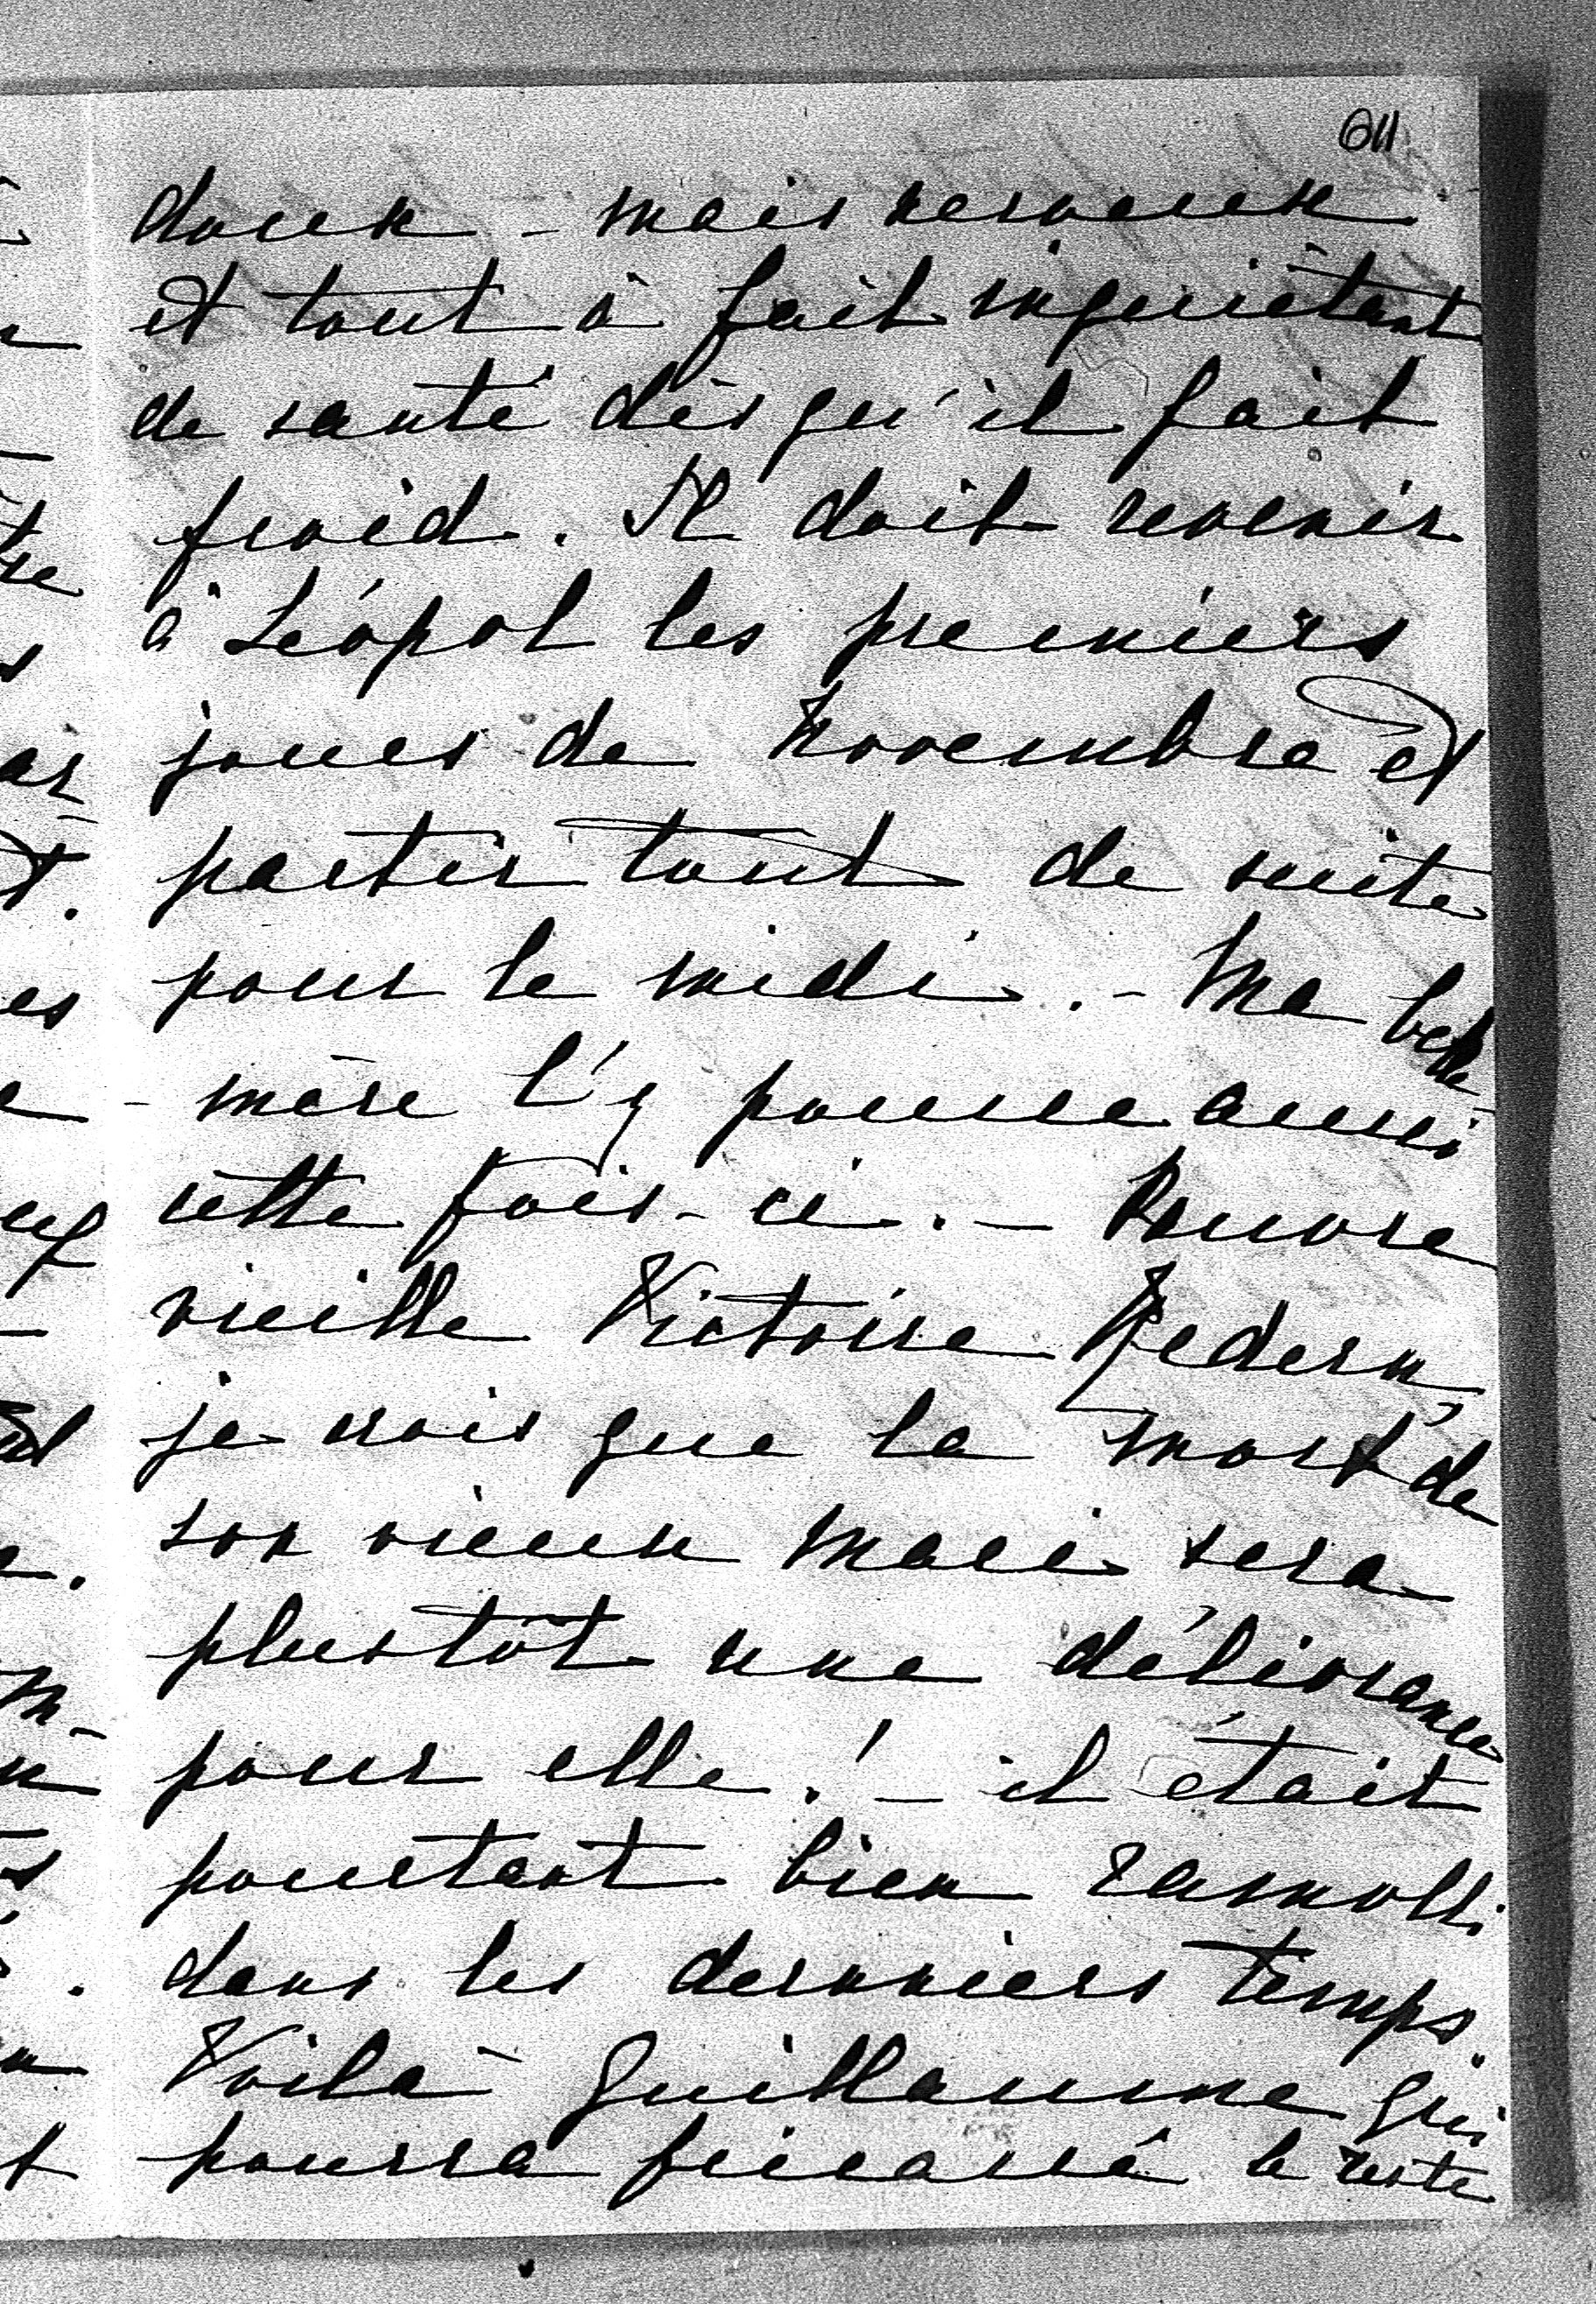 611
doux – mais nerveux
et tout à fait inquiétant
de santé dès qu'il fait
froid. Il doit revenir
à Léopol les premiers
jours de Novembre et
partir tout de suite
pour le midi. – Ma belle
- mère l'y pousse aussi
cette fois-ci. – Pauvre
vieille Victoire
je crois que la mort de
son vieux mari sera
plustôt une délivrance
pour elle! – il était
pourtant bien ramolli
dans les derniers temps.
Voilà Guillaume qui
pourra le reste